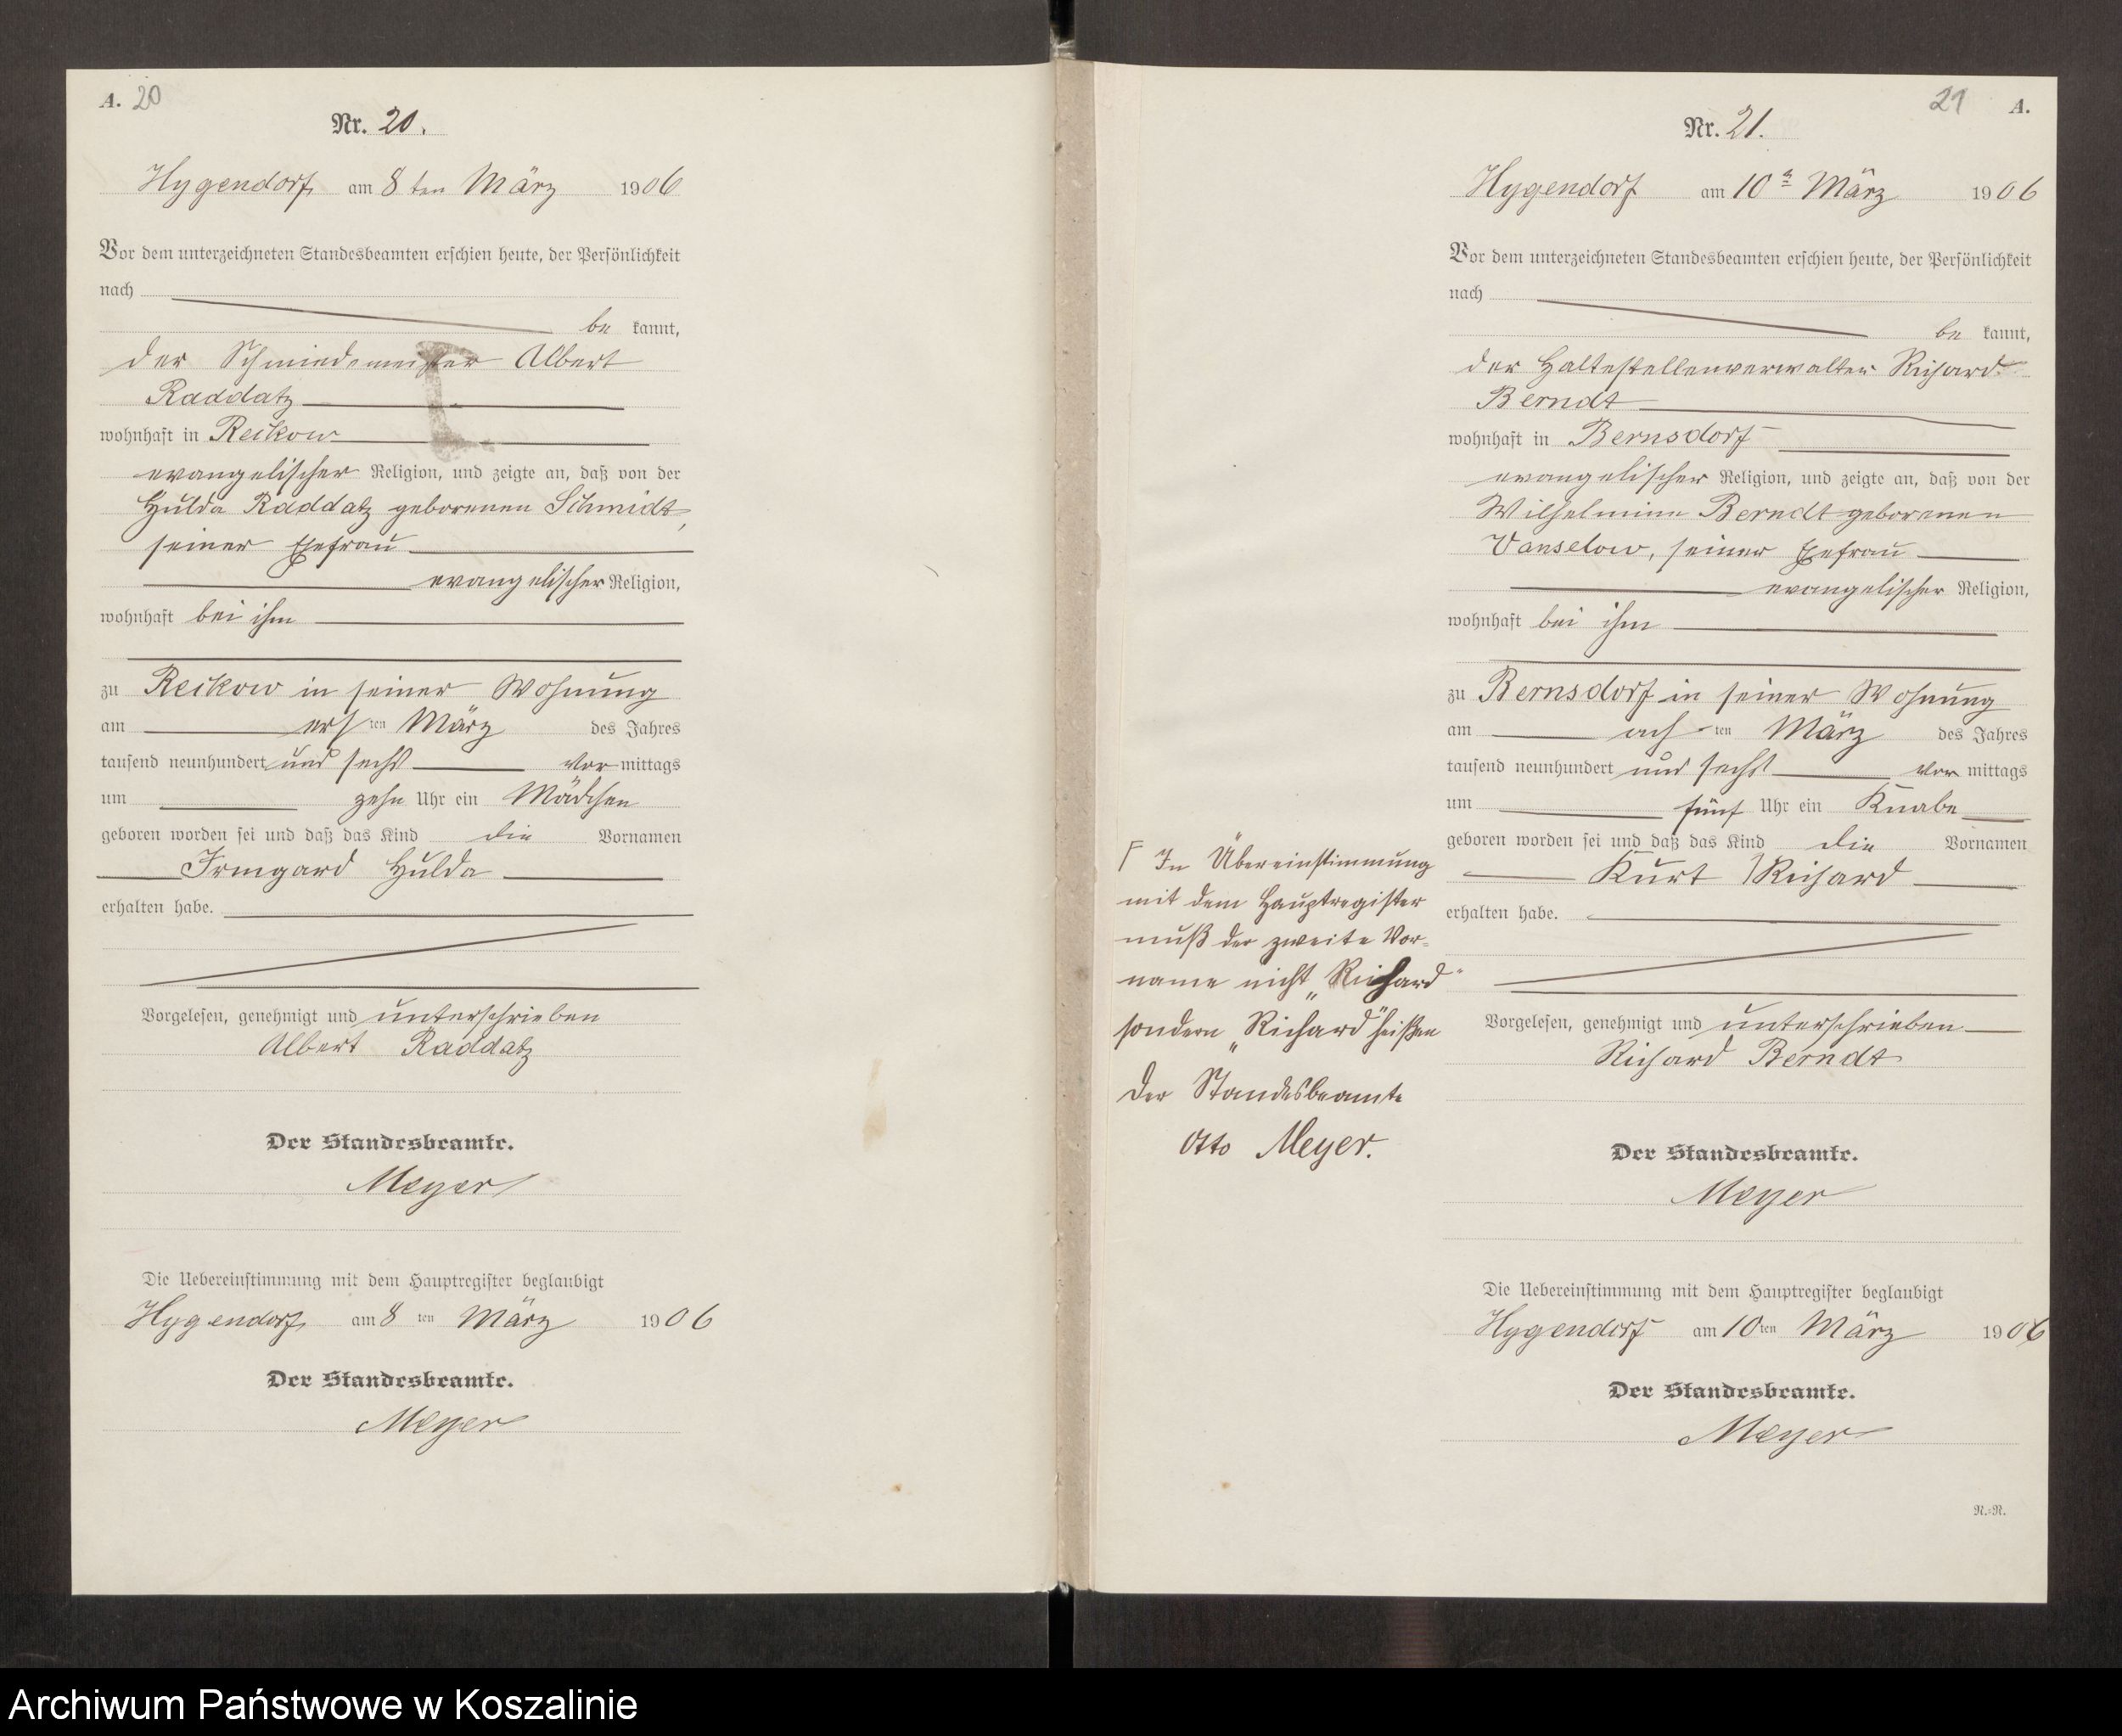 A. 20
Nr. 20.
Hygendorf am 8ten März 1906
Vor dem unterzeichneten Standesbeamten erschien heute, der Persönlichkeit
nach
be kannt,
der Schmiedemeister Albert
Raddatz
wohnhaft in Reikow
evangelischer Religion, und zeigte an, daß von der
Hulda Raddatz geborenen Schmidt,
seiner Ehefrau
evangelischer Religion,
wohnhaft bei ihm
zu Reikow in seiner Wohnung
am ersten März des Jahres
tausend neunhundert und sechs vormittags
um zehn Uhr ein Mädchen
geboren worden sei und daß das Kind die Vornamen
Irmgard Hulda
erhalten habe.
Vorgelesen, genehmigt und unterschrieben
Albert Raddatz
Der Standesbeamte.
Meyer
Die Uebereinstimmung mit dem Hauptregister beglaubigt
Hygendorf am 8ten März 1906
Der Standesbeamte.
Meyer
21 A.
Nr. 21.
Hygendorf am 10 März 1906
Vor dem unterzeichneten Standesbeamten erschien heute, der Persönlichkeit
nach
be kannt,
der Haltestellenverwalter Richard
Berndt
wohnhaft in Bernsdorf
evangelischer Religion, und zeigte an, daß von der
Wilhelmine Berndt geborenen
Vanselow, seiner Ehefrau
evangelischer Religion,
wohnhaft bei ihm
zu Bernsdorf in seiner Wohnung
am achten März des Jahres
tausend neunhundert und sechs vormittags
um fünf Uhr ein Knabe
geboren worden sei und daß das Kind die Vornamen
Kurt Richard
erhalten habe.
Γ In Übereinstimmung
mit dem Hauptregister
muß der zweite Vor=
name nicht „Richard"
sondern „Richard" heißen
Der Standesbeamte
Otto Meyer.
Vorgelesen, genehmigt und unterschrieben
Richard Berndt
Der Standesbeamte.
Meyer
Die Uebereinstimmung mit dem Hauptregister beglaubigt
Hygendorf am 10ten März 1906
Der Standesbeamte.
Meyer
N.=N.
Archiwum Państwowe w Koszalinie